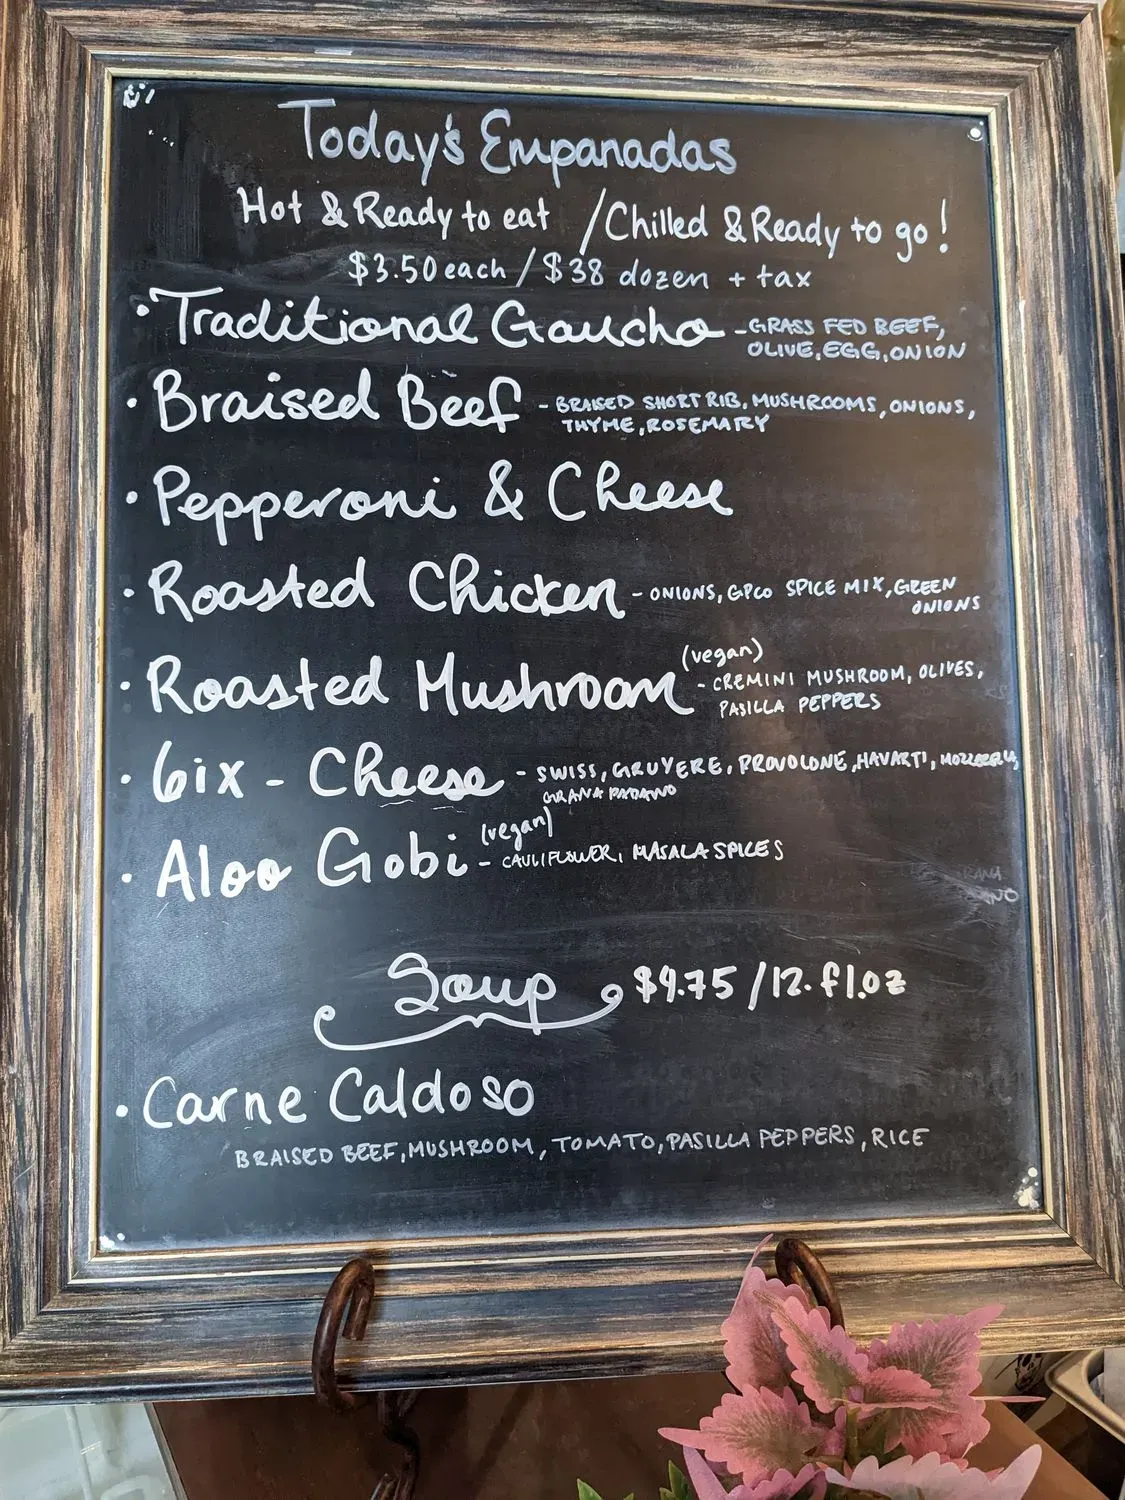 Today's Empanadas
Hot & Ready to eat / Chilled & Ready to go!
$3.50 each / $38 dozen + tax
• Traditional Gaucho - GRASS FED BEEF,
OLIVE, EGG, ONION
• Braised Beef - BRAISED SHORT RIB, MUSHROOMS, ONIONS,
THYME, ROSEMARY
• Pepperoni & Cheese
• Roasted Chicken - ONIONS, GPCO SPICE MIX, GREEN
ONIONS
(vegan)
• Roasted Mushroom - CREMINI MUSHROOM, OLIVES,
PASILLA PEPPERS
• 6ix - Cheese - SWISS, GRUYERE, PROVOLONE, HAVARTI, MOZZERELLA,
GRANA PADANO
(vegan)
• Aloo Gobi - CAULIFLOWER, MASALA SPICES
Soup $9.75 / 12. fl.oz
• Carne Caldoso
BRAISED BEEF, MUSHROOM, TOMATO, PASILLA PEPPERS, RICE